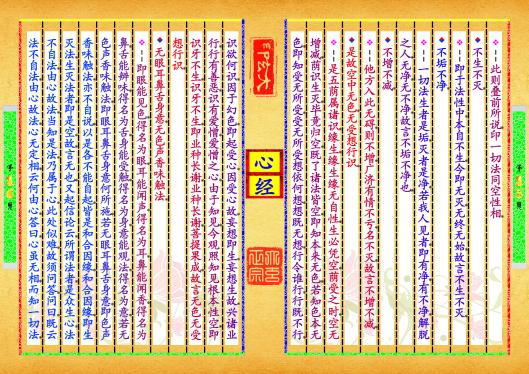 此则叠前所说印一切法同空性相
不生不灭
即于法性中本自不生今即无灭无终无始故言不生不灭
不垢不净
一切法生者是垢灭者是净若我人见者即有净有不净解脱
之人无净无不净故言不垢不净也
不增不减
他方入此无碍则不增广济有情不亏名不灭故言不增不减
是故空中无色无受想行识
是五荫属诸识缘生缘生缘无自性生必凭空荫受之时空无
增减荫识生灭毕竟归空既了诸法皆空即知本来无色若知色本无
色即知受无所受受无所受想依何想想既无想行令谁行行既不行
心经
识欲何识因于幻色即起受心因受心故妄想即生妄想生故兴诸业
行行有善恶识有爱憎爱憎之心由于知见今观照知见根本性空即
识牙不生识牙不生即业种长谢业种长谢菩提果成故言无色无受
想行识
无眼耳鼻舌身意无色声香味触法
即眼能见色得名为眼耳能闻声得名为耳鼻能闻香得名为
鼻舌能辨味得名为舌身能受触得名为身意能观法得名为意若无
色声香味触法即眼耳鼻舌身意何所施若无眼耳鼻舌身意即色声
香味触法亦不自说以是各不能自起皆是和合因缘和合因缘即生
灭法生灭法者即是空故言无也又起信论云所谓法者是众生心法
不自法由心故法当知是法乃属于心此处似难故须问答问曰既云
法不自法由心故法心无定相云何由心答曰心虽无相而知一切法